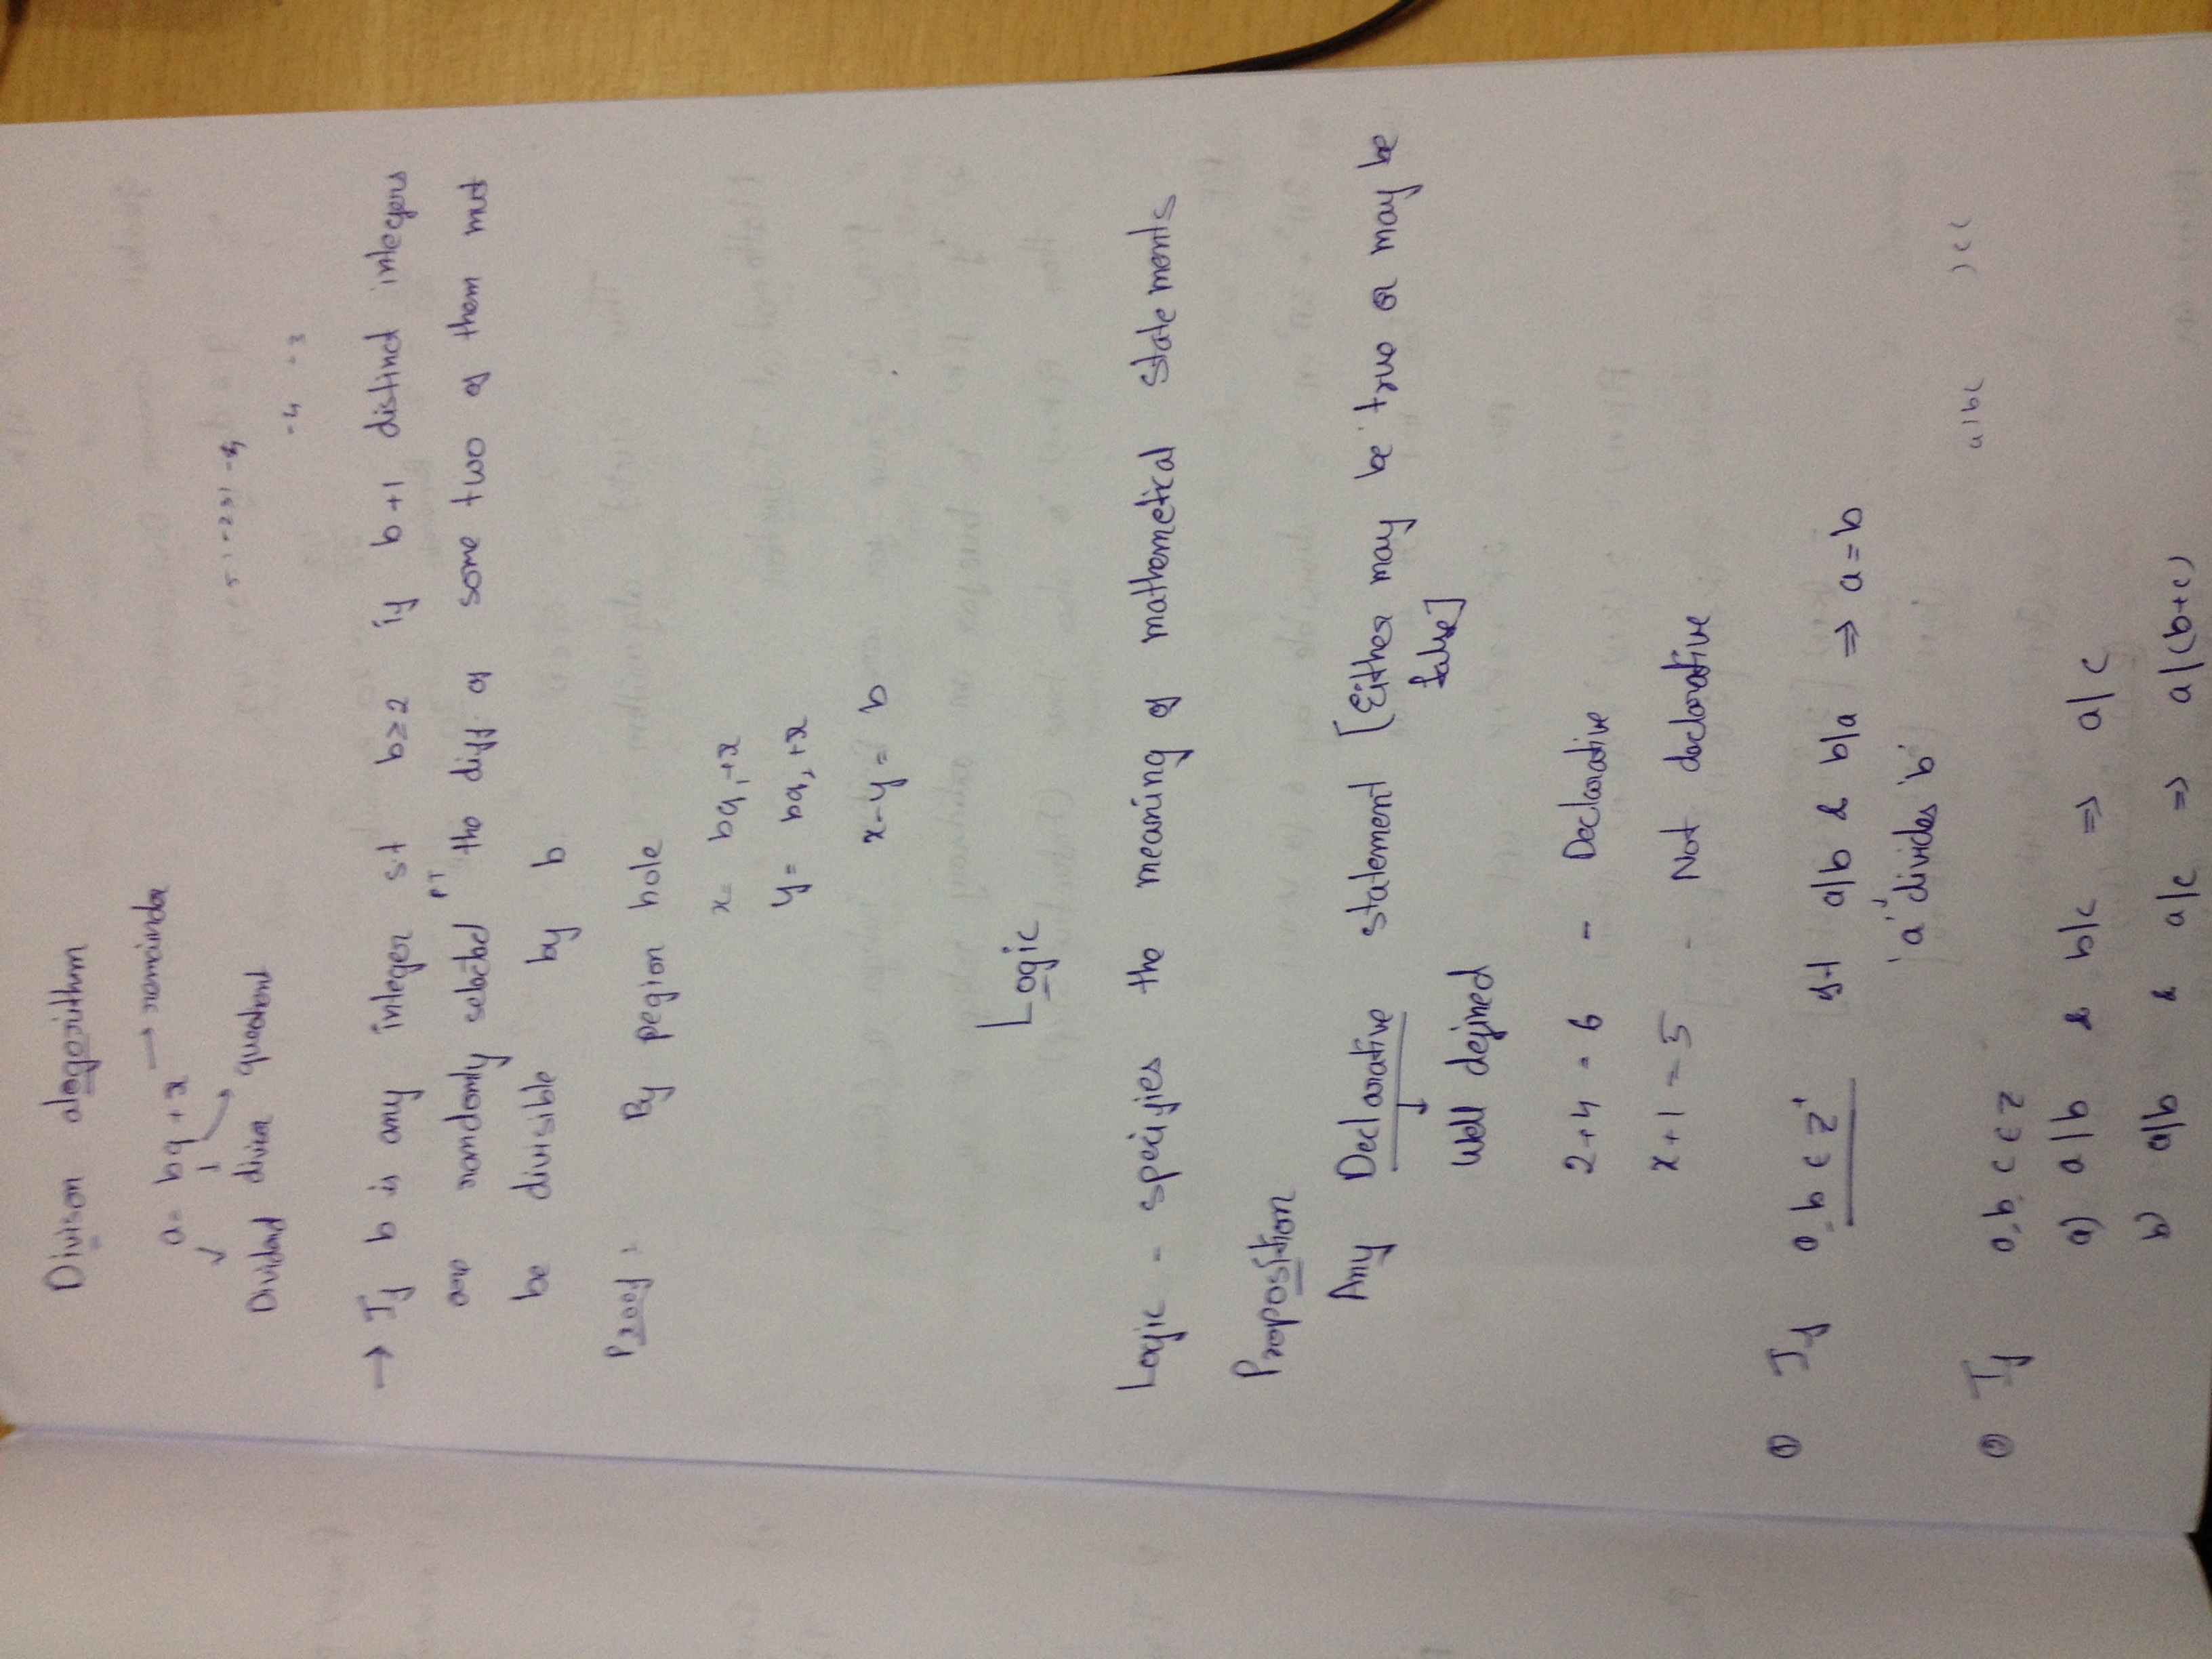 Divison alogorithm
a = bq + r → remainder
Dividend divisor quotient
→ If b is any integer st b≥2 if b+1 distinct integers
are randomly selected PT the diff of some two of them mut
be divisible by b
Proof: By pegion hole
x = bq₁+r
y = bq₂+r
x-y = b
Logic
Logic - specifies the meaning of mathemetical statements
Proposition
Any Declarative statement [Either may be true or may be
false]
Well defined
2+4 = 6 - Declarative
x+1 = 5 - Not declarative
① If a, b ∈ Z⁺ s.t a/b & b/a ⇒ a=b
'a' divides 'b'
② If a, b, c ∈ Z
a) a|b & b/c ⇒ a|c
b) a/b & a/c ⇒ a|(b+c)
a|bc